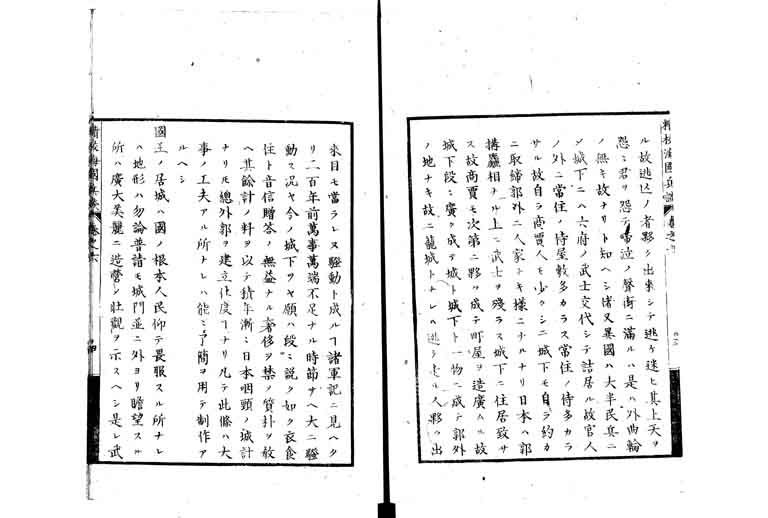 ル故逃込ノ者夥ク出来シテ逃ケ迷ヒ其上天ヲ
怨ミ君ヲ怨テ啼泣ノ聲街ニ滿ル ハ是ハ外曲輪
ノ無キ故ナリト知ヘシ猶又異國ハ大半民兵ニ
シ城下ニハ六府ノ武士交代シテ詰居ル故官人
ノ外ニ常住ノ侍屋數多カラス常住ノ侍多カラ
サル故自ラ商賈人モ少クシニ城下モ自ラ約カ
ニ取締郭外ニ人家ナキ樣ニナルナリ日本ハ郭
搆麤相ナル上ニ武士ヲ殘ラス城下ニ住居致サ
ス故商賈モ次第ニ夥ク成テ町屋ヲ造廣ル故
城下段ニ廣ク成テ城ト城下ト一物ニ成テ郭外
ノ地ナキ故ニ籠城トナレハ逃ケ走ル人夥ク出
來目モ當ラレス騷動ト成ル 諸軍記ニ見ヘタ
リ二百年前萬事萬端不足ナル時節サヘ大ニ騷
動ス况ヤ今ノ城下ヲヤ願ハ段ニ説ク如ク衣食
住ト音信贈答ノ無益ナル奢侈ヲ禁ノ質朴ヲ敎
ヘ其餘計ノ料ヲ以テ積年漸ニ日本咽頭ノ城計
ナリ 總外郭ヲ建立仕度 ナリ凡テ此條ハ大
事ノ工夫アル所ナレハ能ニ了簡ヲ用テ制作ア
ルヘシ
國王ノ居城ハ國ノ根本人民仰テ畏服スル所ナレ
ハ地形ハ勿論普請モ城門並ニ外ヨリ瞻望スル
所ハ廣大美麗ニ造營シ壯觀ヲ示スヘシ是レ武